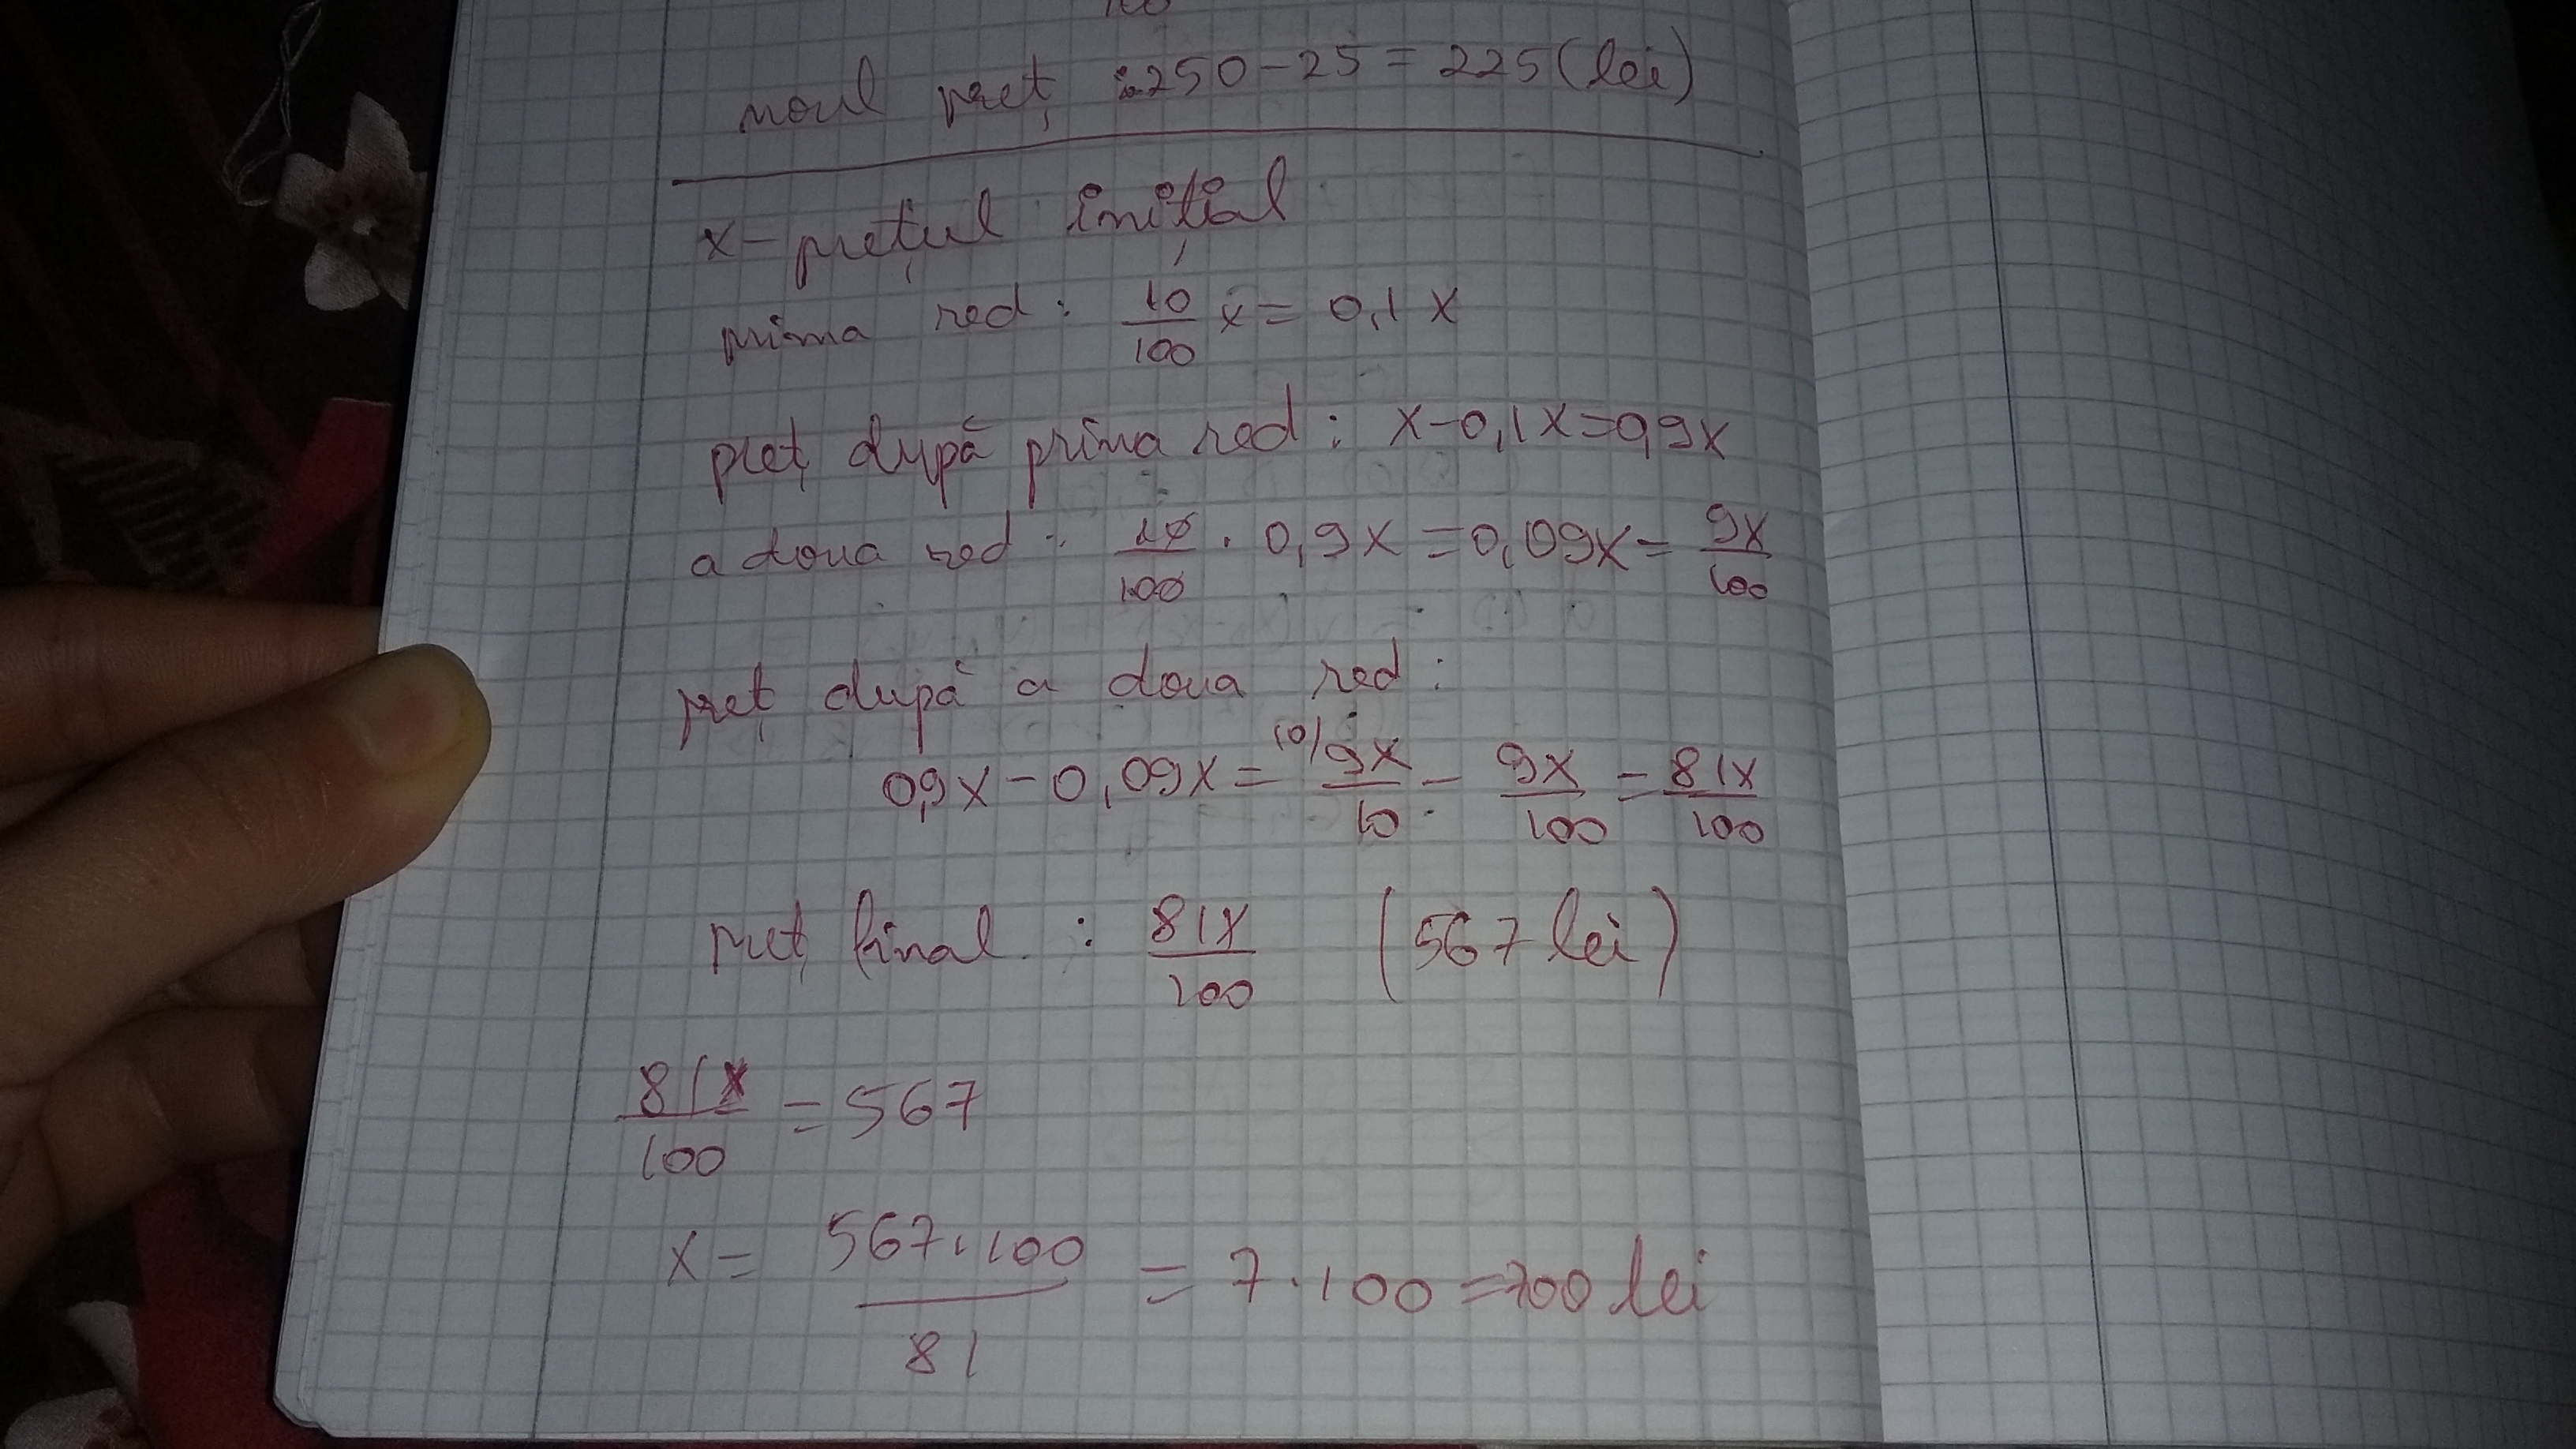 100
noul preț : 250 - 25 = 225 (lei)
x - prețul inițial
prima red : 10/100 x = 0,1 x
preț după prima red : x - 0,1x = 0,9x
a doua red : 10/100 · 0,9x = 0,09x = 9x/100
preț după a doua red :
0,9x - 0,09x = 10/ 9x/10 - 9x/100 = 81x/100
preț final : 81x/100 (567 lei)
81x/100 = 567
x = 567·100/81 = 7·100 = 700 lei